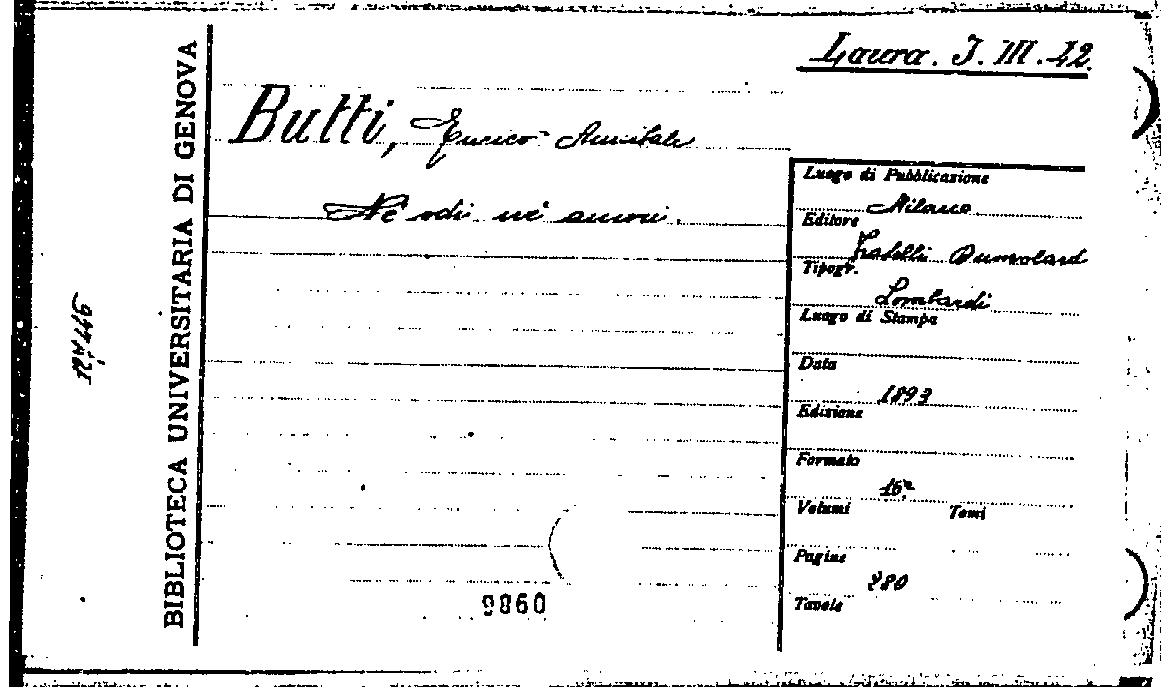 Laura. J. III. 42.
BIBLIOTECA UNIVERSITARIA DI GENOVA
Butti, Enrico Annibale
Nè odi nè amori.
Luogo di Pubblicazione
Milano
Editore
Fratelli Dumolard
Tipogr.
Lombardi
Luogo di Stampa
Data
1893
Edizione
Formato
16°
Volumi Tomi
Pagine
280
Tavole
9860